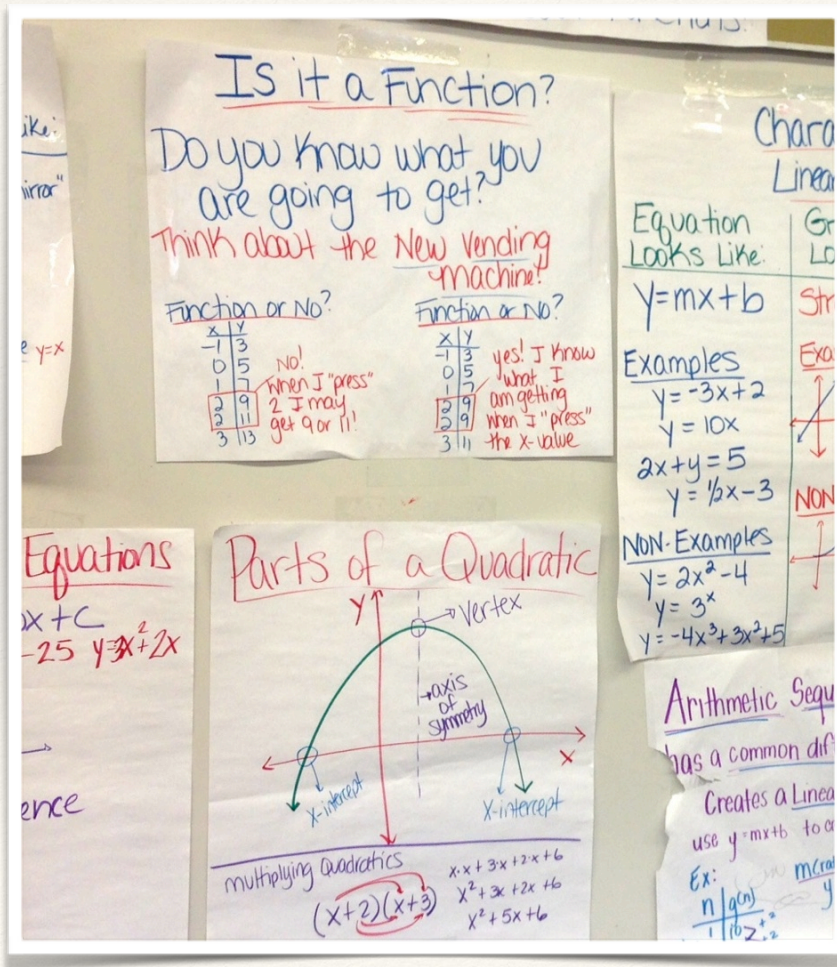 ike:
irror"
y=x
Is it a Function?
Do you know what you
are going to get?
Think about the New Vending
machine!
Function or No?
x | y
-1 | 3
0 | 5
1 | 7
2 | 9
2 | 11
3 | 13
No!
when I "press"
2 I may
get 9 or 11!
Function or No?
x | y
-1 | 3
0 | 5
1 | 7
2 | 9
2 | 9
3 | 11
yes! I know
what I
am getting
when I "press"
the x-value
Chara
Linea
Equation
Looks Like:
Gr
Lo
y=mx+b
Str
Examples
Exa
y=-3x+2
y=10x
2x+y=5
y=½x-3
NON-Examples
NON
y=2x²-4
y=3ˣ
y=-4x³+3x²+5
Equations
x+c
-25 y=3x²+2x
ence
Parts of a Quadratic
y
vertex
axis
of
symmetry
x
x-intercept
x-intercept
multiplying Quadratics
(x+2)(x+3)
x·x+3·x+2·x+6
x²+3x+2x+6
x²+5x+6
Arithmetic Sequ
has a common dif
Creates a Linea
use y=mx+b to
Ex:
n | g(n)